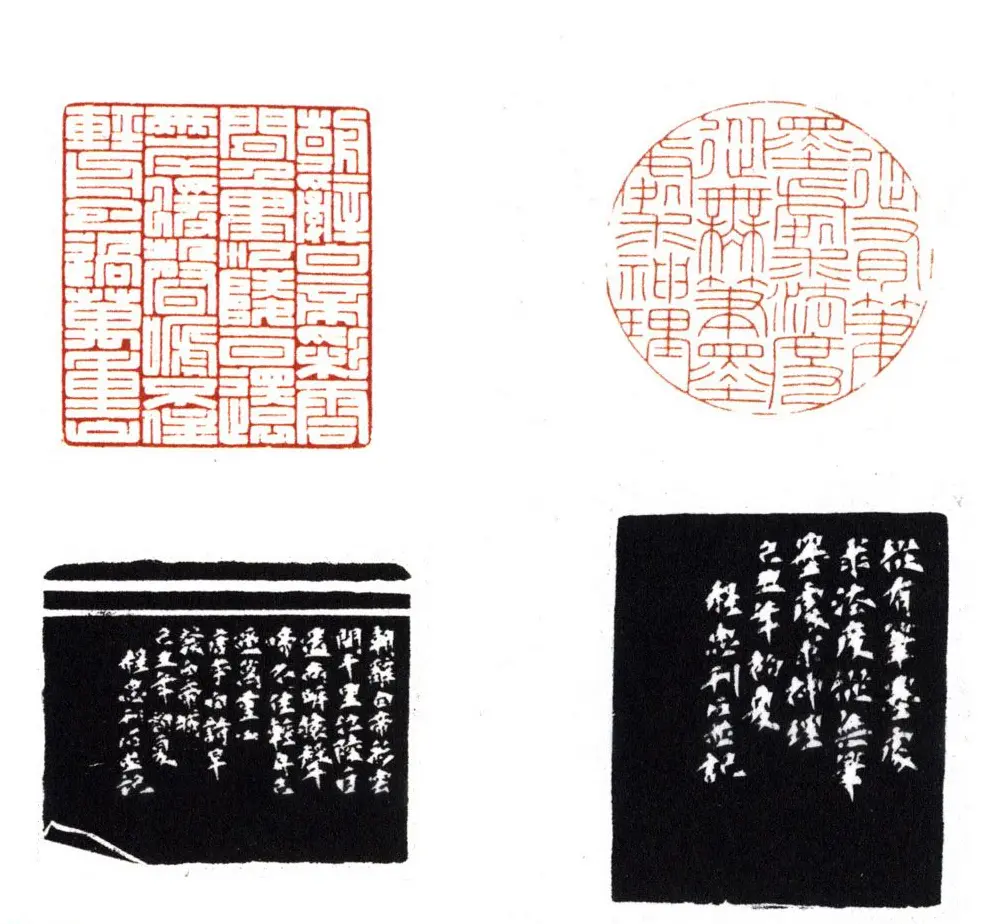 朝辭白帝彩雲
間千里江陵一日還
兩岸猿聲啼不住
輕舟已過萬重山
從有筆
墨處求法度
從無筆墨
處求神理
朝辭白帝彩雲
間千里江陵一日
還兩岸猿聲
啼不住輕舟已
過萬重山
唐李白詩早
發白帝城
己丑年初夏
程忠刊石並記
從有筆墨處
求法度從無筆
墨處求神理
己丑年初夏
程忠刊石並記